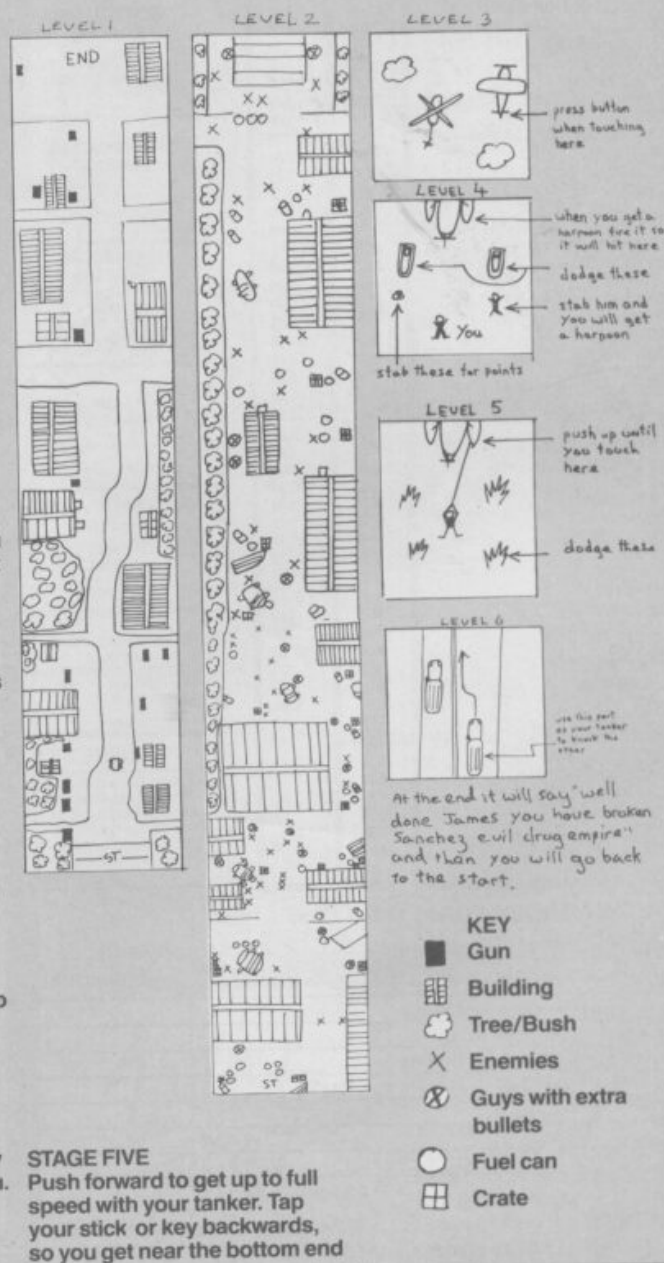 LEVEL 1
END
ST
LEVEL 2
ST
LEVEL 3
press button
when touching
here
LEVEL 4
when you get a
harpoon fire it so
it will hit here
dodge these
stab him and
you will get
a harpoon
You
stab these for points
LEVEL 5
push up until
you touch
here
dodge these
LEVEL 6
use this part
of your tanker
to knock the
other
At the end it will say "well
done James you have broken
Sanchez evil drug empire"
and then you will go back
to the start.
KEY
Gun
Building
Tree/Bush
Enemies
Guys with extra
bullets
Fuel can
Crate
STAGE FIVE
Push forward to get up to full
speed with your tanker. Tap
your stick or key backwards,
so you get near the bottom end